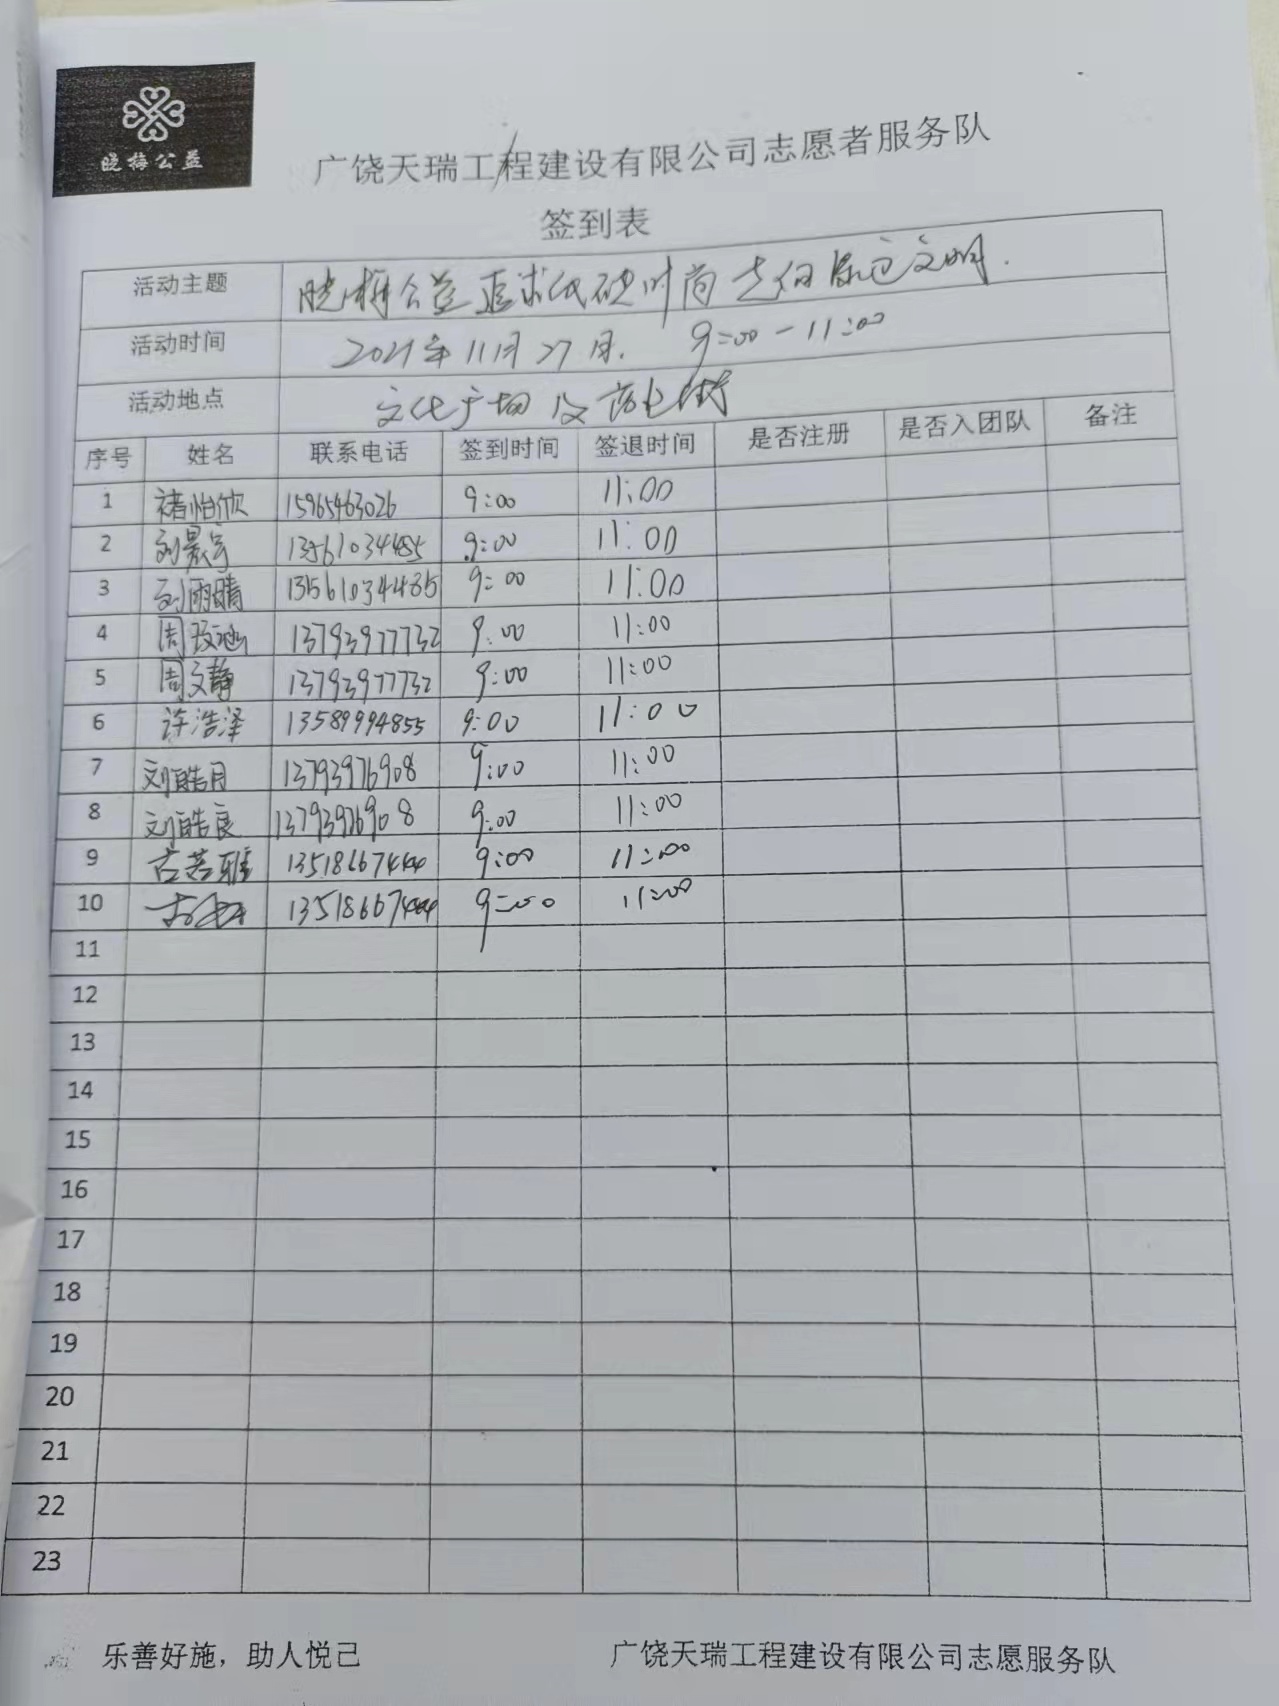 晓梅公益
广饶天瑞工程建设有限公司志愿者服务队
签到表
活动主题 晓梅公益追求低碳时尚 走向绿色文明.
活动时间 2021年11月27日. 9:00-11:00
活动地点 文化广场及
序号 姓名 联系电话 签到时间 签退时间 是否注册 是否入团队 备注
1 褚怡欣 15965463026 9:00 11:00
2 刘晨宇 13561034485 9:00 11:00
3 刘雨晴 13561034485 9:00 11:00
4 周玫涵 13793977732 9:00 11:00
5 周文静 13793977732 9:00 11:00
6 许浩泽 13589994855 9:00 11:00
7 刘皓月 13793976908 9:00 11:00
8 刘皓良 13793976908 9:00 11:00
9 古若雅 13518667444 9:00 11:00
10 13518667444 9:00 11:00
11
12
13
14
15
16
17
18
19
20
21
22
23
乐善好施，助人悦己 广饶天瑞工程建设有限公司志愿服务队